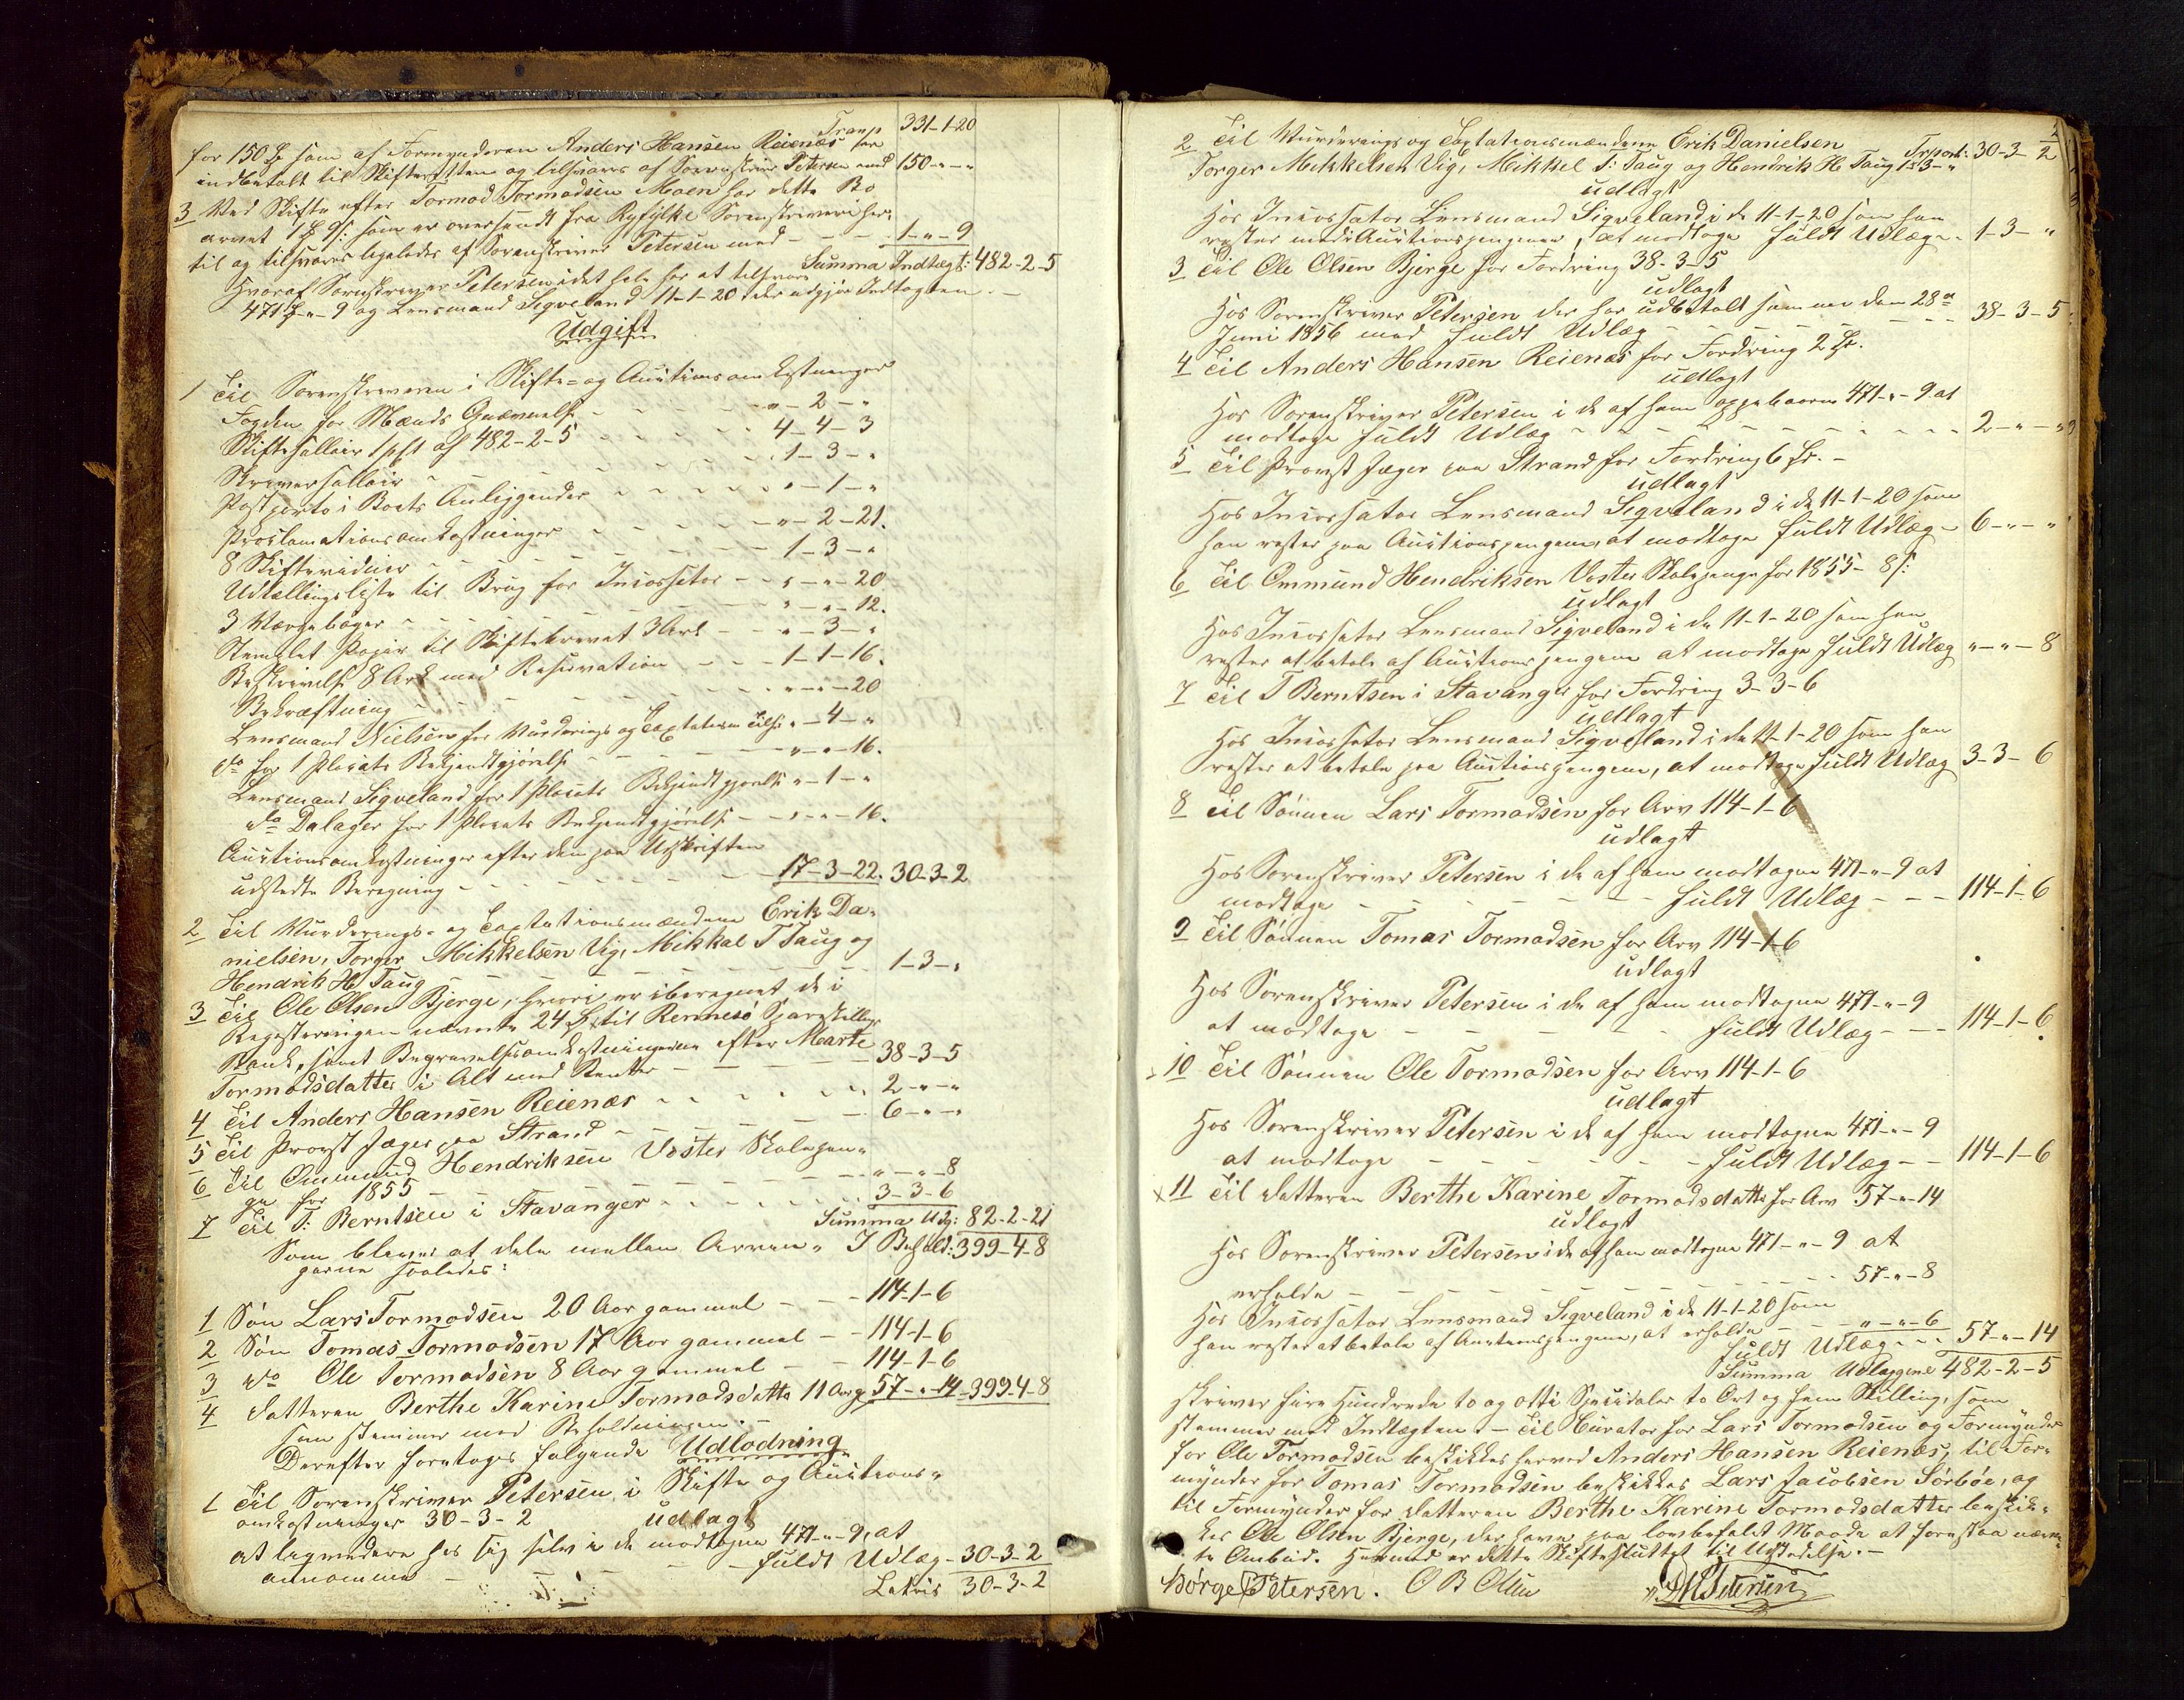 Transp 331-1-20
for 150 Sp som af Formynderen Anders Hansen Reienæs har
indbetalt til Skifteretten og tilsvares af Sorenskriver Petersen med 150-"-"
3 Ved Skifte efter Tormod Tormodsen Moen har dette Bo
arvet 1 Sp 9 s: som er oversendt fra Ryfylke Sorenskriveri her-
til og tilsvares ligeledes af Sorenskriver Petersen med - - - 1-"-9
Summa Indtægt: 482-2-5
Hvoraf Sorenskriver Petersen i det hele har at tilsvare
471 Sp-"-9 og Lensmand Sigveland 11-1-20 der udgjør Indtægten. -
Udgift
1 Til Sorenskriveren i Skifte- og Auctionsomkostninger
Fogden for Mænds Opnævnelse - - - "-2-"
Skiftesallair 1 pCt af 482-2-5 - - - 4-4-3
Skriversallair - - - 1-3-"
Postporto i Boets Anliggender - - - "-1-"
Proclamationsomkostninger - - - "-2-21.
8 Skiftevidner - - - 1-3-"
Udtællingsliste til Brug for Incassator - - "-"-20
3 Værgebøger - - - "-"-12.
Stemplet Papir til Skiftebrevet 3 Ark - - "-3-"
Beskrivelse 8 Ark med Reservation - - - 1-1-16.
Bekræftning - - - "-"-20
Lensmand Nielsen for Vurderings og Taxtations Tilsi "-4-"
do for 1 Placats Bekjendtgjørelse - - - "-"-16.
Lensmand Sigveland for 1 Placats Bekjendtgjørelse "-1-"
do Dalager for 1 Placats Bekjendtgjørelse - - "-"-16.
Auctionsomkostninger efter den paa Udskriften
udstedte Beregning - - - 17-3-22. 30-3-2
2 Til Vurderings- og Taxtationsmændene Erik Da-
nielsen, Torger Mikkelsen Vig, Mikkal T Taug og
Hendrik H Taug - - - 1-3-"
3 Til Ole Olsen Bjerge, hvori er iberegnet de i
Registeringen nævnte 24 Sp til Rennesö Spareskillings
Bank, samt Begravelsesomkostningerne efter Marte
Tormodsdatter i Alt med Renter - - - 38-3-5
4 Til Anders Hansen Reienæs - - - 2-"-"
5 Til Provst Jæger paa Strand - - - 6-"-"
6 Til Ommund Hendriksen Voster Skolepen-
ge for 1855 - - - "-"-8
7 Til T: Berntsen i Stavanger - - - 3-3-6
Summa Udg: 82-2-21
Som bliver at dele mellem Arvin- I Behold: 399-4-8
gerne saaledes:
1 Søn Lars Tormodsen 20 Aar gammel - - - 114-1-6
2 Søn Tomas Tormodsen 17 Aar gammel - - 114-1-6
3 do Ole Tormodsen 8 Aar gammel - - 114-1-6
4 Datteren Berthe Karine Tormodsdatter 11 Aar g 57-"-14 399-4-8
som stemmer med Beholdningen. -
Derefter foretoges følgende Udlodning
1 Til Sorenskriver Petersen i Skifte og Auctions-
omkostninger 30-3-2 udlagt
at lignedere hos sig selv i de modtagne 471-"-9, at
annamme - - - fuldt Udlæg - 30-3-2
Latus 30-3-2
2 Til Vurderings og Taxtationsmændene Erik Danielsen Trsport: 30-3-2
Torger Mikkelsen Vig, Mikkel T: Taug og Hendrik H Taug 1-3-"
udlagt
Hos Incassator Lensmand Sigveland i de 11-1-20 som han
rester med Auctionspengene, at modtage fuldt Udlæg - 1-3-"
3 Til Ole Olsen Bjerge for Fordring 38-3-5
udlagt
Hos Sorenskriver Petersen der har udbetalt samme den 28de
Juni 1856 med fuldt Udlæg - - - 38-3-5
4 Til Anders Hansen Reienæs for Fordring 2 Sp.
udlagt
Hos Sorenskriver Petersen i de af ham oppebaarne 471-"-9 at
modtage fuldt Udlæg - - - 2-"-"
5 Til Provst Jæger paa Strand for Fordring 6 Sp. -
udlagt
Hos Incassator Lensmand Sigveland i de 11-1-20 som
han rester paa Auctionspengene, at modtage fuldt Udlæg - 6-"-"
6 Til Ommund Hendriksen Voster Skolepenge for 1855 - 8 s:
udlagt
Hos Incassator Lensmand Sigveland i de 11-1-20 som han
rester at betale af Auctionspengene at modtage fuldt Udlæg "-"-8
7 Til T Berntsen i Stavanger for Fordring 3-3-6
udlagt
Hos Incassator Lensmand Sigveland i de 11-1-20 som han
rester at betale paa Auctionspengene, at modtage fuldt Udlæg 3-3-6
8 Til Sønnen Lars Tormodsen for Arv 114-1-6
udlagt
Hos Sorenskriver Petersen i de af ham modtagne 471-"-9 at
modtage - - - fuldt Udlæg - - - 114-1-6
9 Til Sønnen Tomas Tormodsen for Arv 114-1-6
udlagt
Hos Sorenskriver Petersen i de af ham modtagne 471-"-9
at modtage - - - fuldt Udlæg - - - 114-1-6
10 Til Sønnen Ole Tormodsen for Arv 114-1-6
udlagt
Hos Sorenskriver Petersen i de af ham modtagne 471-"-9
at modtage - - - fuldt Udlæg - - 114-1-6
x 11 Til Datteren Berthe Karine Tormodsdatter for Arv 57-"-14
udlagt
Hos Sorenskriver Petersen i de af ham modtagne 471-"-9 at
erholde - - - 57-"-8
Hos Incassator Lensmand Sigveland i de 11-1-20 som
han rester at betale af Auctionspengene, at erholde - - - "-"-6
fuldt Udlæg - - 57-"-14
Summa Udlæggene 482-2-5
skriver fire Hundrede to og otti Speciedaler to Ort og fem Skilling, som
stemmer med Indtægten. - Til Curator for Lars Tormodsen og Formynder
for Ole Tormodsen beskikkes herved Anders Hansen Reienæs, til For-
mynder for Tomas Tormodsen beskikkes Lars Jacobsen Sörböe, og
til Formynder for Datteren Berthe Karine Tormodsdatter beskik-
kes Ole Olsen Bjerge, der have paa lovbefalet Maade at forestaa nævn-
te Ombud. Hermed er dette Skifte sluttet til Udstedelse. -
Börge Petersen. O B Olsen Petersen